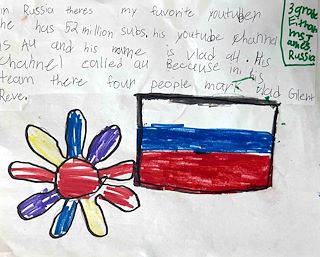 in Russia theres my favorite youtuber
he has 52 million subs. his youtube channel
is A4 and his name is vlad a4. His
channel called a4 Because in his
team there four people mark vlad Glent
Reve.
3 grade
Ethan
ms.
Russia